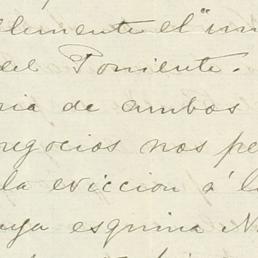 lemente el "in
del Poniente.
ria de ambos
negocios nos pe
la eviccion á l
uya esquina N